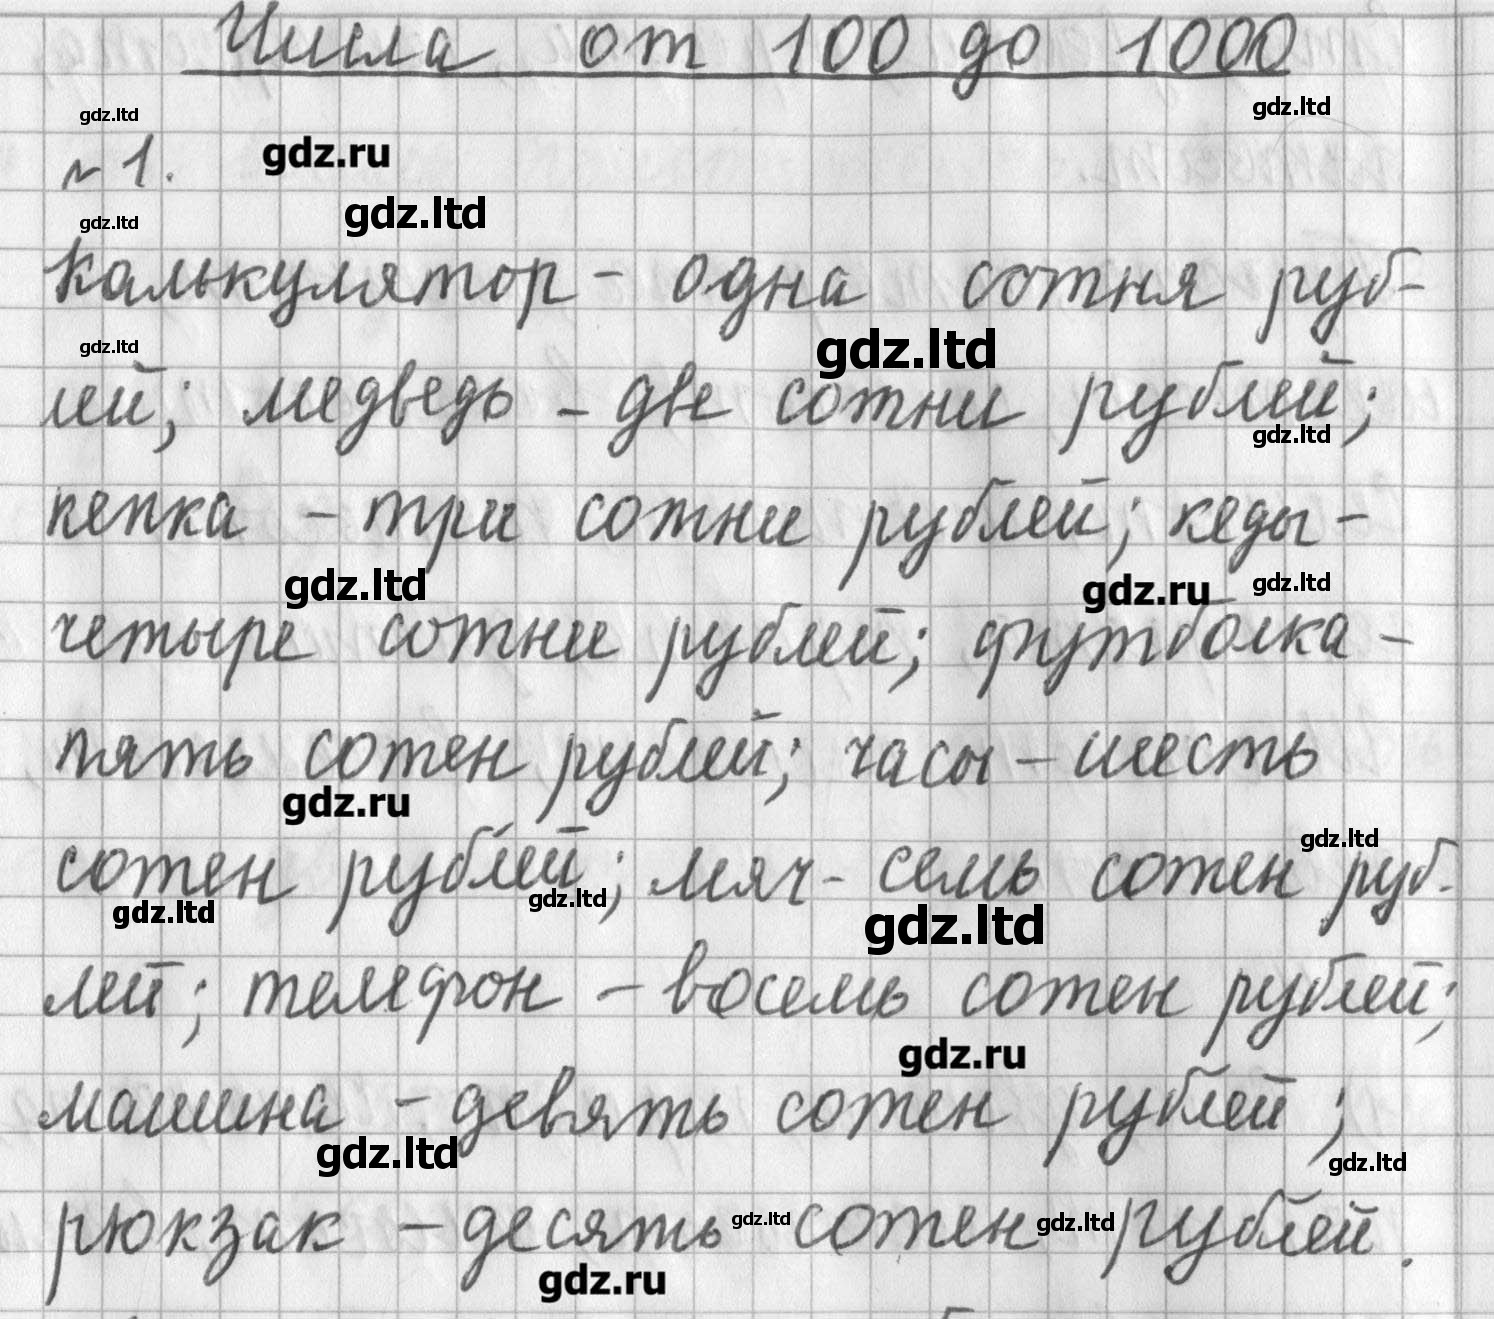 Числа от 100 до 1000
№1.
Калькулятор - одна сотня руб-
лей; медведь - две сотни рублей;
кепка - три сотни рублей; кеды -
четыре сотни рублей; футболка -
пять сотен рублей; часы - шесть
сотен рублей; мяч - семь сотен руб-
лей; телефон - восемь сотен рублей;
машина - девять сотен рублей;
рюкзак - десять сотен рублей.
gdz.ltd
gdz.ltd
gdz.ru
gdz.ltd
gdz.ltd
gdz.ltd
gdz.ltd
gdz.ltd
gdz.ltd
gdz.ru
gdz.ltd
gdz.ru
gdz.ltd
gdz.ltd
gdz.ltd
gdz.ltd
gdz.ru
gdz.ltd
gdz.ltd
gdz.ltd
gdz.ltd
gdz.ru